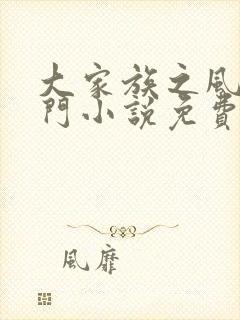 大家族之風
門小說免費
風靡